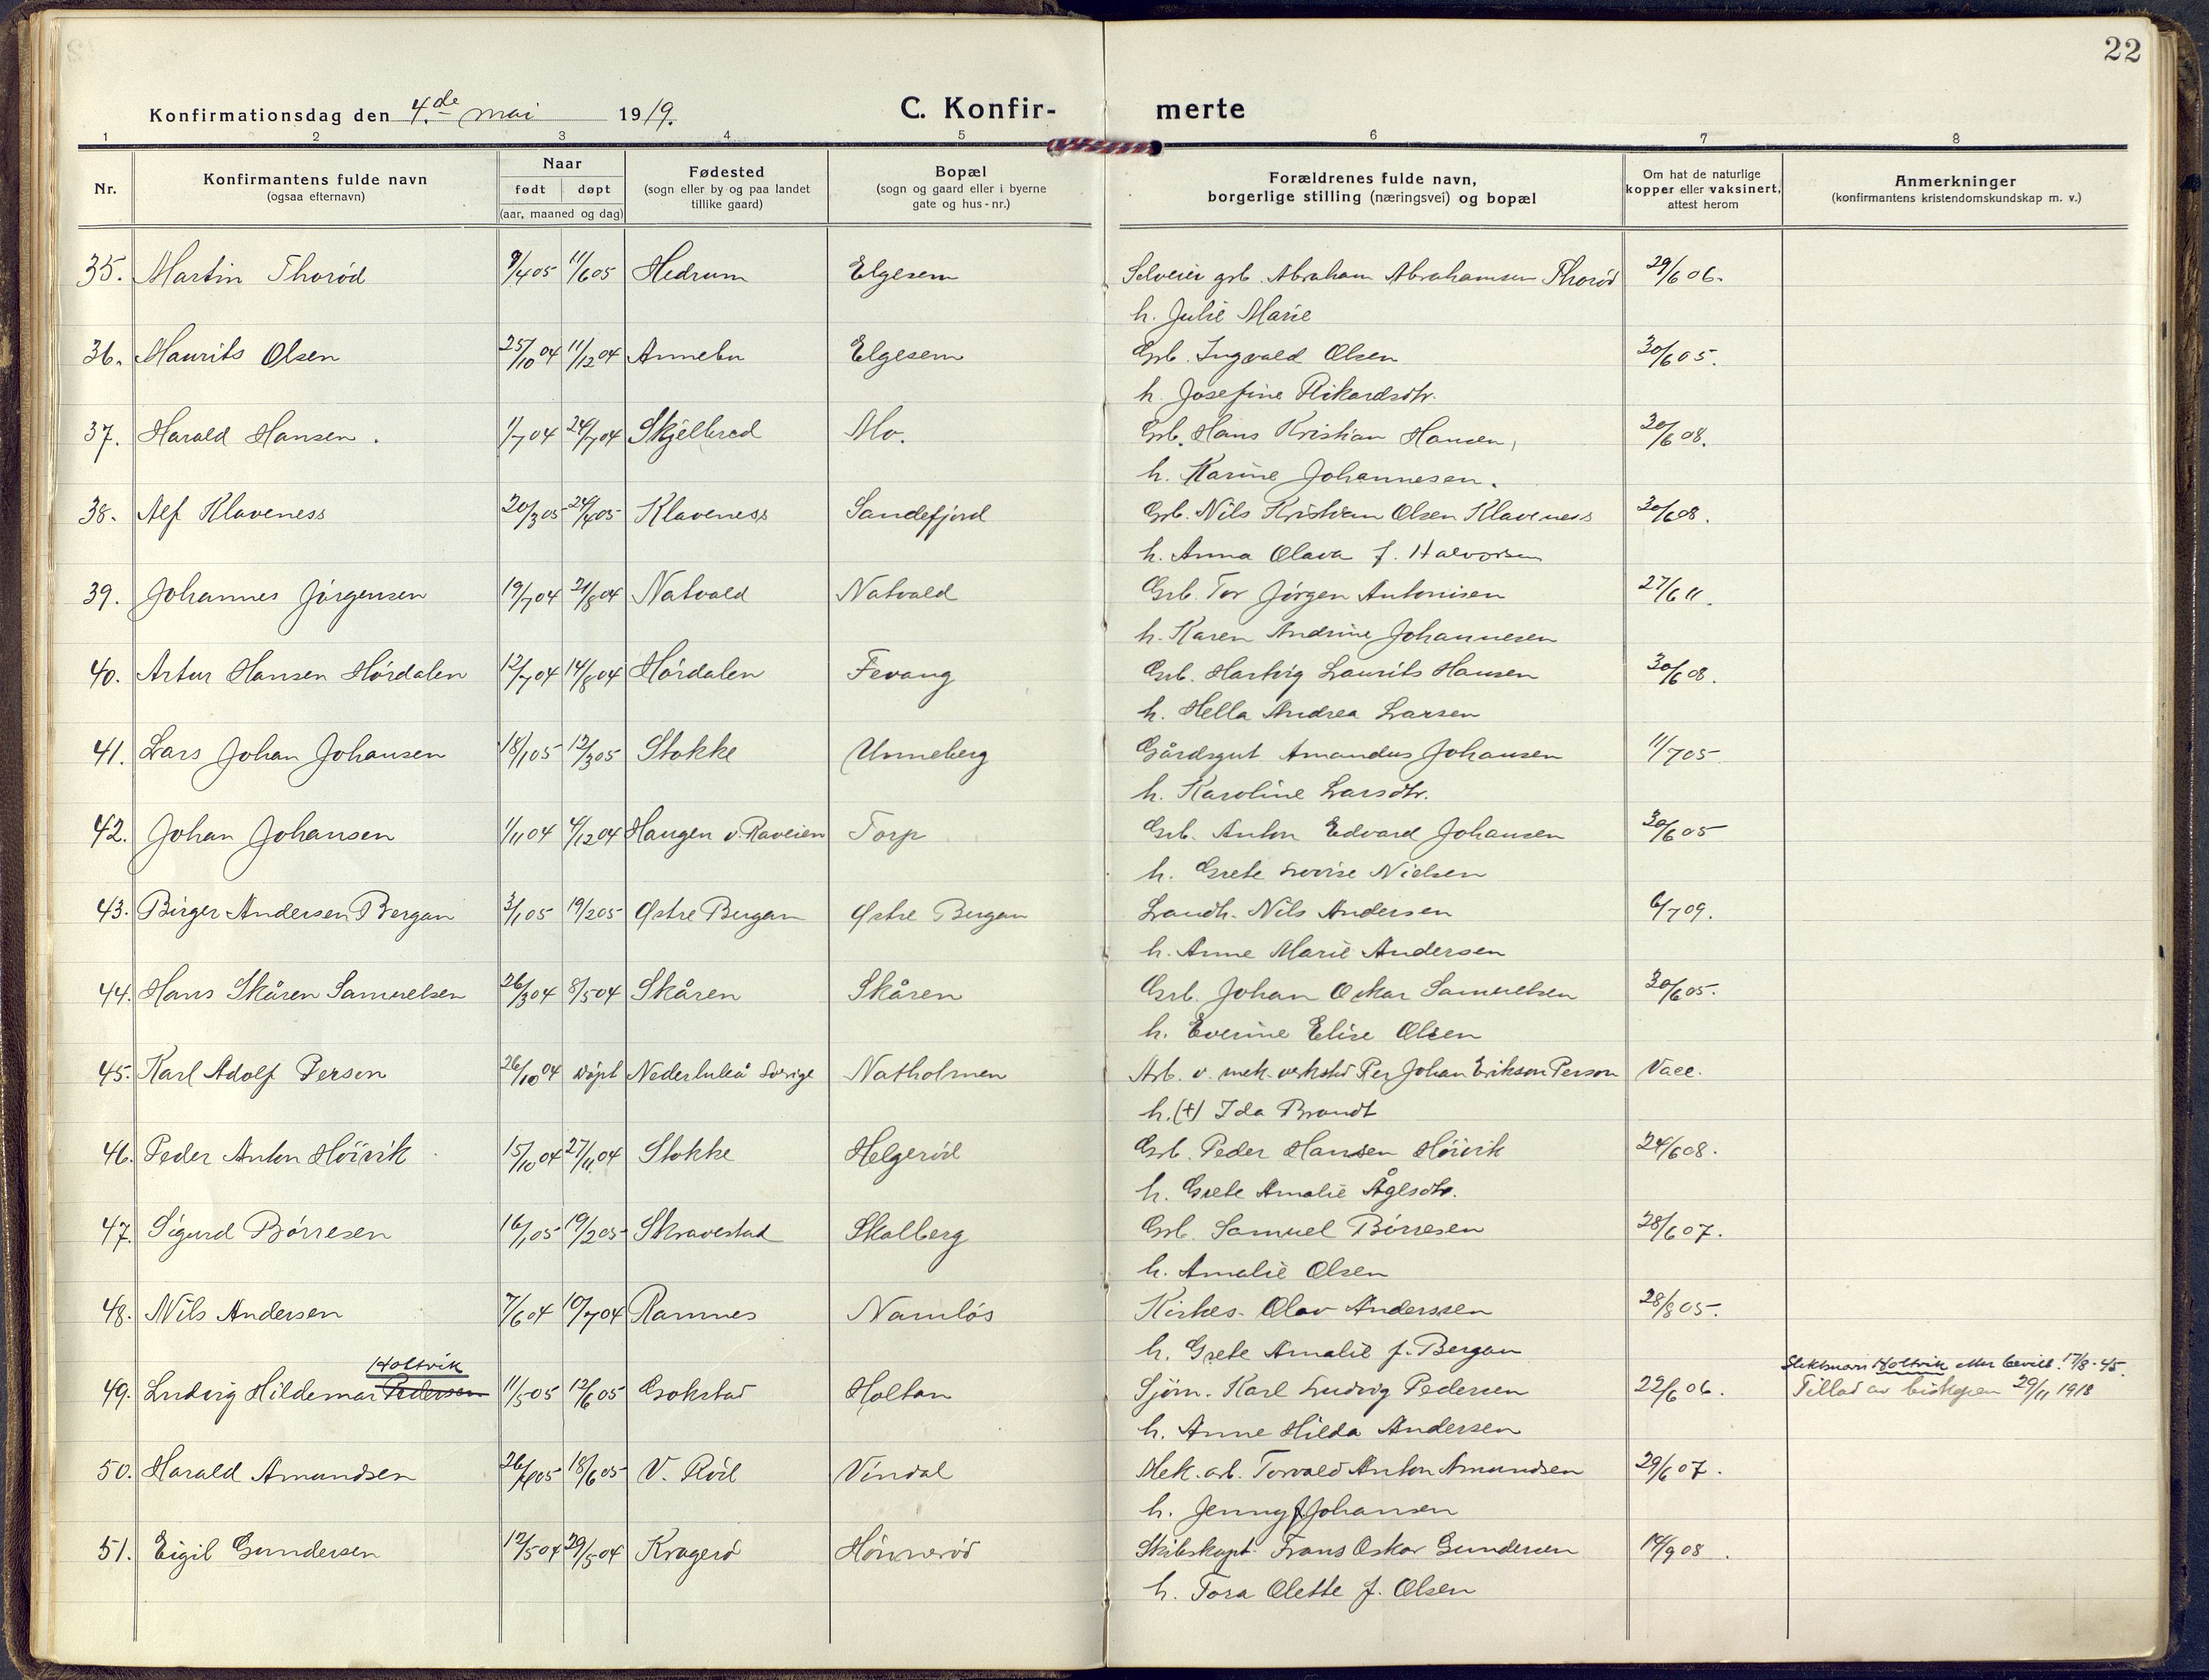 22
Konfirmationsdag den 4.de mai 1919. C. Konfir- merte
1 2 3 4 5 6 7 8
Nr. Konfirmantens fulde navn (ogsaa efternavn) Naar født døpt (aar, maaned og dag) Fødested (sogn eller by og paa landet tillike gaard) Bopæl (sogn og gaard eller i byerne gate og hus-nr.) Forældrenes fulde navn, borgerlige stilling (næringsvei) og bopæl Om hat de naturlige kopper eller vaksinert, attest herom Anmerkninger (konfirmantens kristendomskundskap m. v.)
35. Martin Thorød 9/4 05 11/6 05 Hedrum Elgesem Selveier grb. Abraham Abrahamsen Thorød 29/6 06.
h. Julie Marie
36. Maurits Olsen 25/10 04 11/12 04 Annebu Elgesem Grb. Ingvald Olsen 30/6 05.
h. Josefine Rikardsdtr.
37. Harald Hansen. 1/7 04 24/7 04 Skjelbred Mo. Grb. Hans Kristian Hansen, 30/6 08.
h. Karine Johannesen.
38. Alf Klaveness 20/3 05 24/4 05 Klaveness Sandefjord Grb. Nils Kristian Olsen Klaveness 30/6 08.
h. Anna Olava f. Halvorsen
39. Johannes Jørgensen 19/7 04 21/8 04 Natvald Natvald Grb. Tor Jørgen Antonisen 27/6 11.
h. Karen Andrine Johannesen
40. Artur Hansen Hørdalen 12/7 04 14/8 04 Hørdalen Fevang Grb. Hartvig Laurits Hansen 30/6 08.
h. Hella Andrea Larsen
41. Lars Johan Johansen 18/1 05 12/3 05 Stokke Unneberg Gårdsgut Amandus Johansen 11/7 05
h. Karoline Larsdtr.
42. Johan Johansen 1/11 04 4/12 04 Haugen v. Raveien Torp Grb. Anton Edvard Johansen 30/6 05
h. Grete Lovise Nielsen
43. Birger Andersen Bergan 3/1 05 19/2 05 Østre Bergan Østre Bergan Landh. Nils Andersen 6/7 09.
h. Anne Marie Andersen
44. Hans Skåren Samuelsen 26/3 04 8/5 04 Skåren Skåren Grb. Johan Oskar Samuelsen 30/6 05.
h. Everine Elise Olsen
45. Karl Adolf Person 26/10 04 døpt Nederluleå Sverige Natholmen Arb. v. mek. verksted Per Johan Erikson Person Vacc.
h. (+) Ida Brandt
46. Peder Anton Höivik 15/10 04 27/11 04 Stokke Helgerød Grb. Peder Hansen Höivik 24/6 08.
h. Grete Amalie Ågesdtr.
47. Sigurd Børresen 16/1 05 19/2 05 Skravestad Skolberg Grb. Samuel Børresen 28/6 07.
h. Amalie Olsen
48. Nils Andersen 7/6 04 10/7 04 Ramnes Namløs Kirkes. Olav Anderssen 28/8 05.
h. Grete Amalie f. Bergan
Holtvik Slektsnavn Holtvik etter bevill. 17/8-45.
49. Ludvig Hildemar Pedersen 11/5 05 12/6 05 Gokstad Holtan Sjøm. Karl Ludvig Pedersen 22/6 06. Tillad av biskopen 29/11 1918
h. Anne Hilda Andersen
50. Harald Amundsen 26/4 05 18/6 05 V. Rød Vindal Mek. arb. Torvald Anton Amundsen 29/6 07.
h. Jenny f Johansen
51. Eigil Gundersen 12/5 04 29/5 04 Kragerø Hönnerød Skibskapt. Frans Oskar Gundersen 14/9 08.
h. Tora Olette f. Olsen